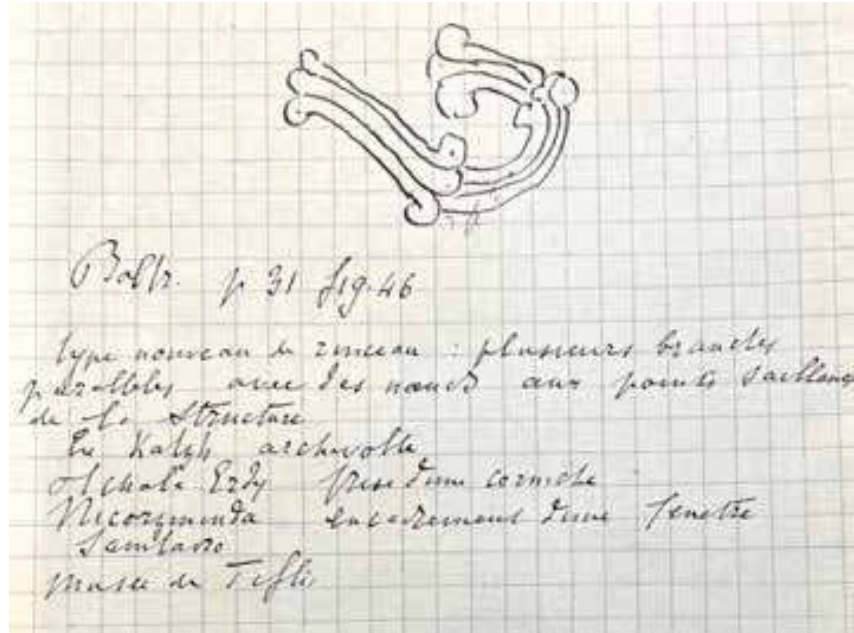 Baltr. p 31 fig. 46
type nouveau de rinceau : plusieurs branches
parallèles avec des nœuds aux points saillants
de la structure
Ex Katsh archivolte
Tchala Erdy frise d'une corniche
Nicorzminda encadrement d'une fenêtre
Samtavro
musée de Tiflis